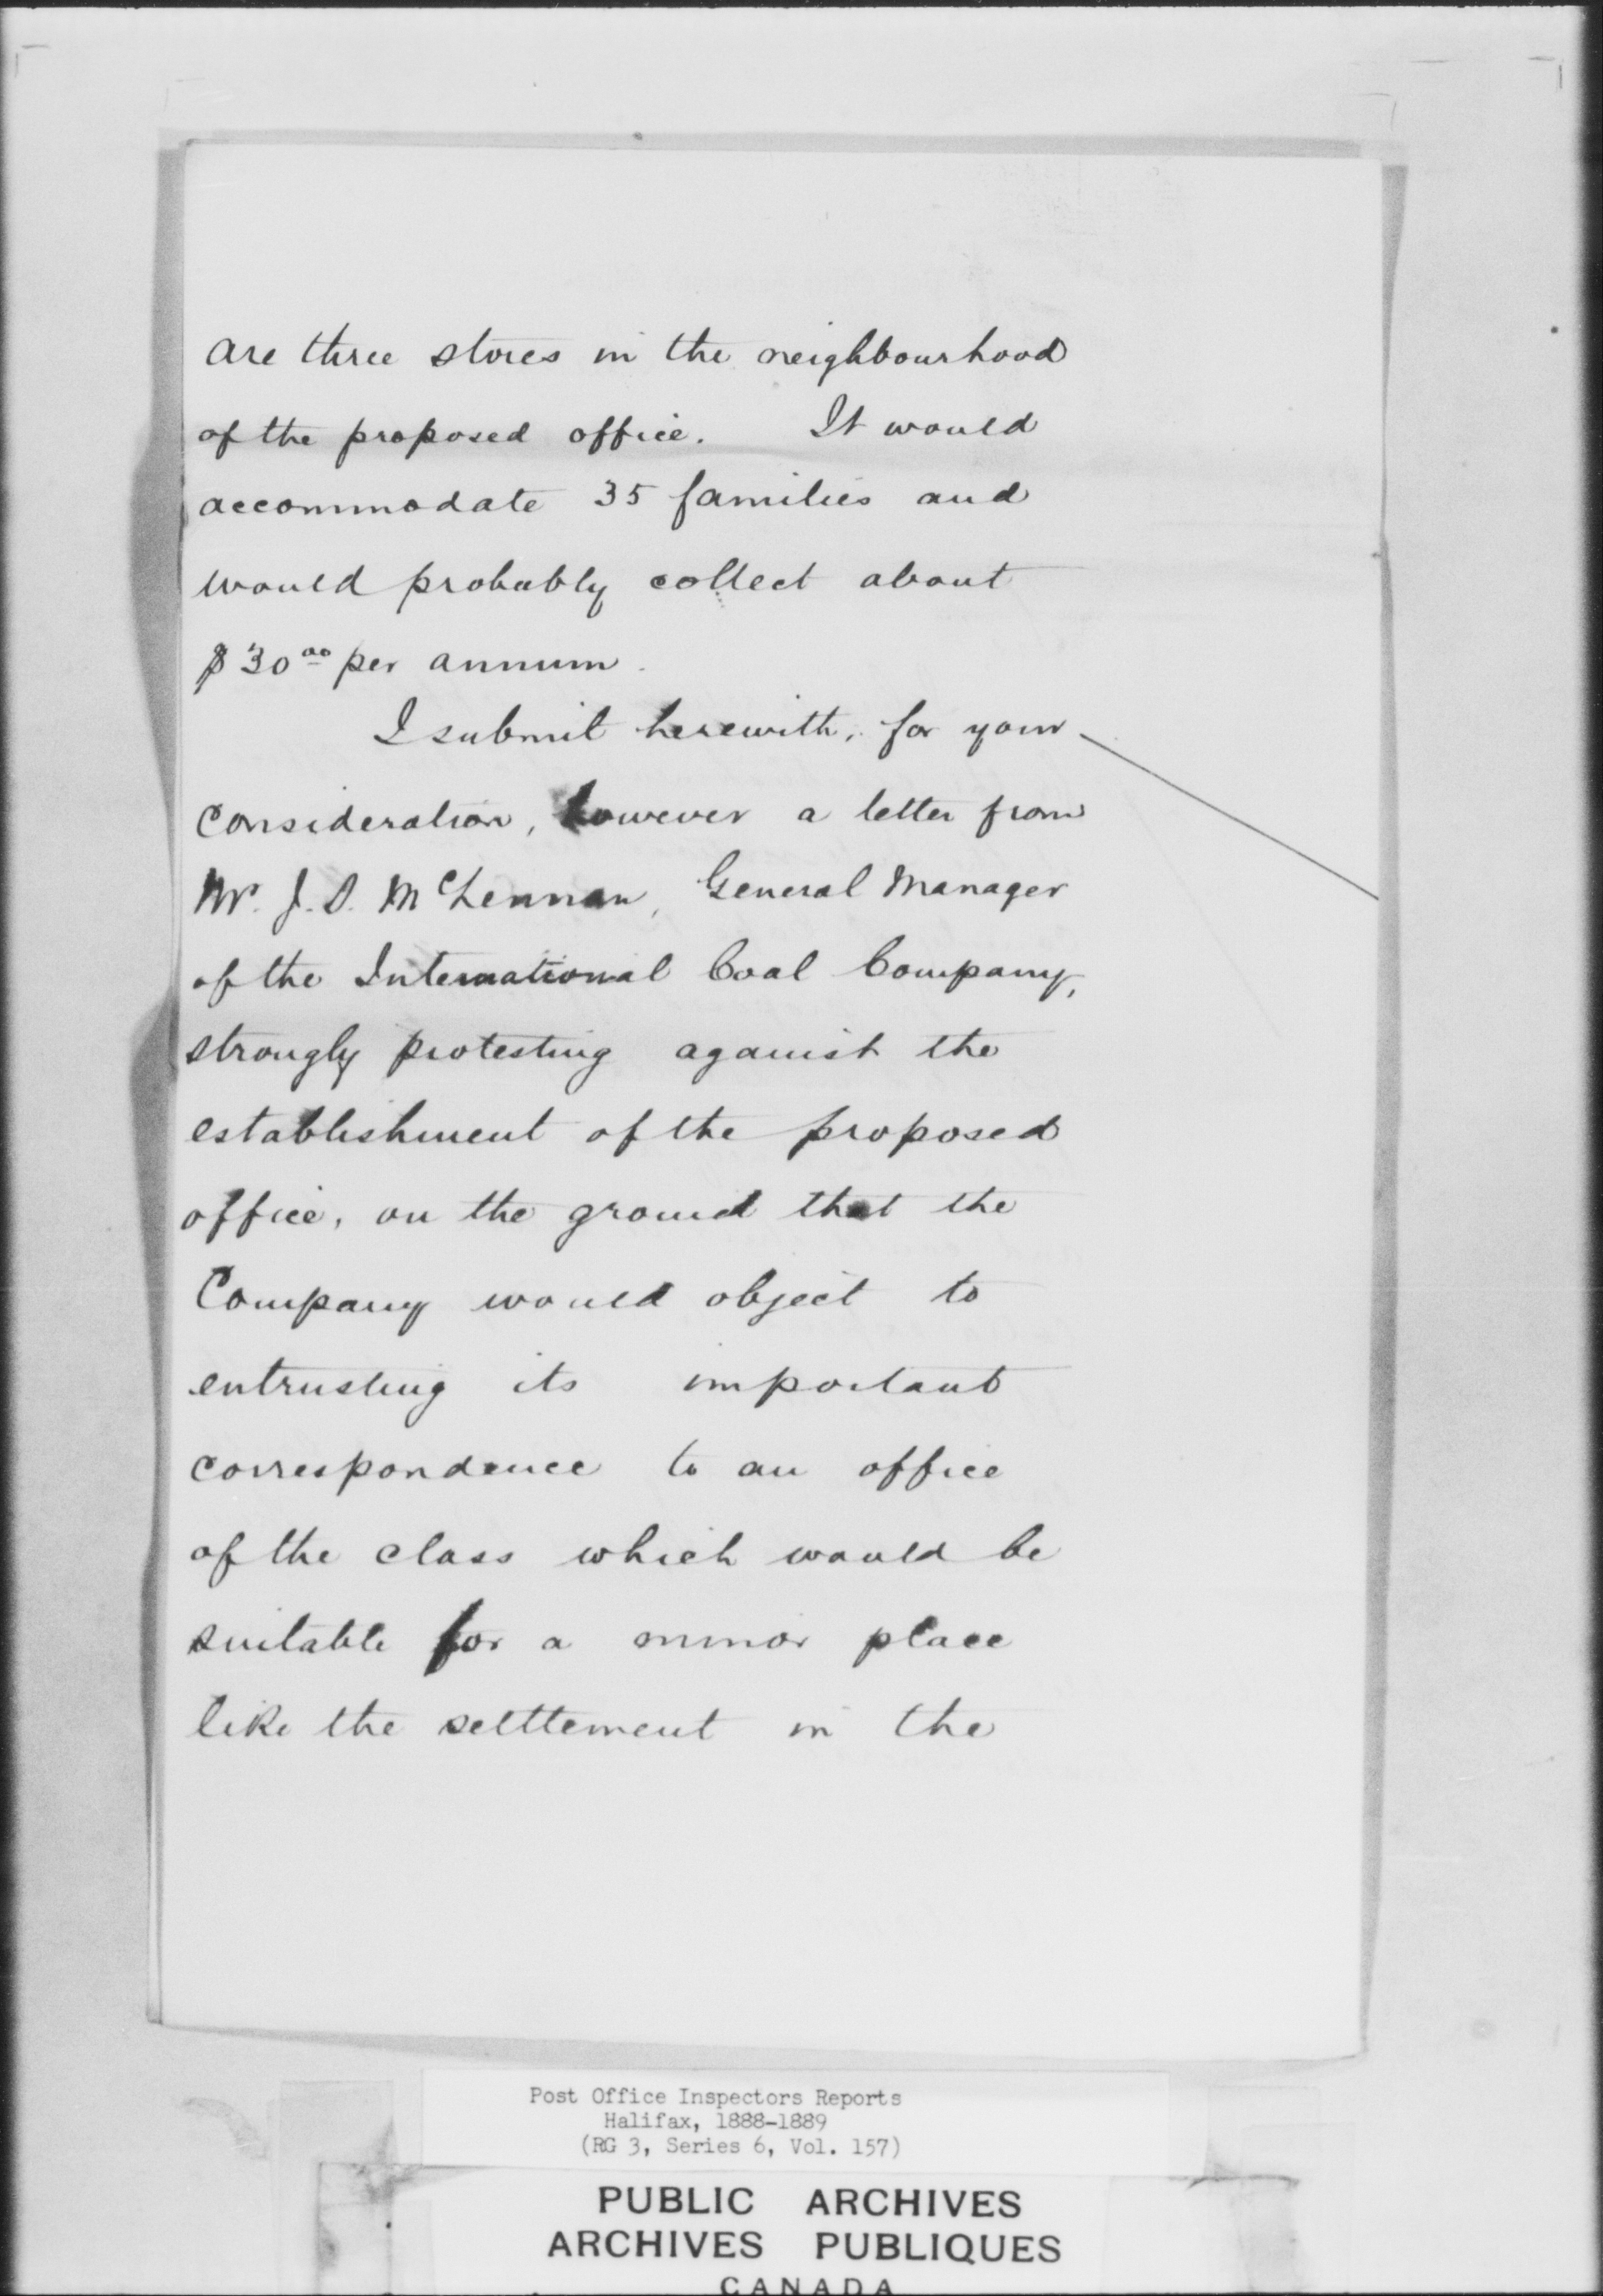 are three stores in the neighbourhood
of the proposed office. It would
accommodate 35 families and
would probably collect about
$30.00 per annum.
I submit herewith, for your
consideration, however a letter from
Mr. J. S. McLennan, General Manager
of the International Coal Company,
strongly protesting against the
establishment of the proposed
office, on the ground that the
Company would object to
entrusting its important
correspondence to an office
of the class which would be
suitable for a minor place
like the settlement in the
Post Office Inspectors Reports
Halifax, 1888-1889
(RG 3, Series 6, Vol. 157)
PUBLIC ARCHIVES
ARCHIVES PUBLIQUES
CANADA